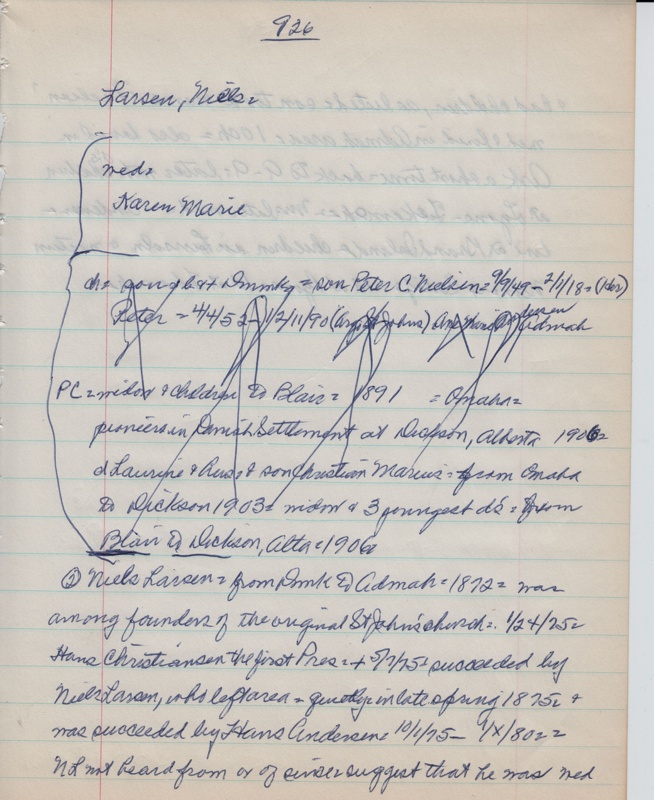 926
Larsen, Niels =
med =
Karen Marie
ch = son b & + Dnmk = son Peter C. Nielsen = 9/9/49 - 2/1/18 = (Her)
Peter = 4/4/52 - 12/11/90 (St Johns) Admah
PC = widow & children to Blair = 1891 = Omaha =
pioneers in Danish Settlement at Dickson, Alberta 1906 =
d Laurine & Rus, & son Christian Marius = from Omaha
to Dickson 1903 = widow & 3 youngest d's = from
Blair to Dickson, Alta = 1906
② Niels Larsen = from Dnmk to Admah = 1872 = was
among founders of the original St John's church = 1/24/75 =
Hans Christiansen the first Pres = + 5/7/75 = succeeded by
Niels Larsen, who left area = quietly in late spring 1875 = &
was succeeded by Hans Andersen = 10/1/75 - 1/X/80 = =
NL not heard from or of since = suggest that he was med